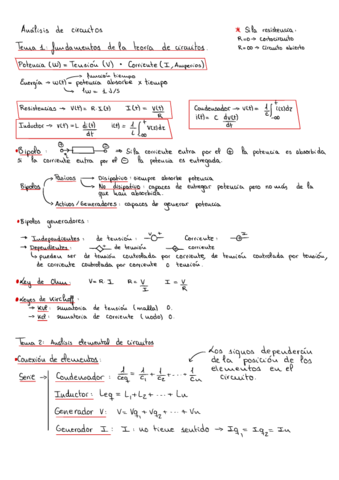 Análisis de circuitos
* Si la resistencia:
R=0 → cortocircuito
R=∞ → Circuito abierto
Tema 1: fundamentos de la teoría de circuitos.
Potencia (W) = Tensión (V) · Corriente (I, Amperios)
función tiempo
Energía → w(t) = potencia absorbida x tiempo
1w = 1 J/s
Resistencias → V(t) = R I(t) I(t) = V(t)/R
Condensador → V(t) = 1/C ∫ i(z)dz
i(t) = C dv(t)/dt
Inductor → v(t) = L di(t)/dt i(t) = 1/L ∫ V(z)dz
• Bipolo: → Si la corriente entra por el ⊕ la potencia es absorbida
si la corriente entra por el ⊖ la potencia es entregada.
Bipolos
Pasivos → Disipativo: siempre absorbe potencia
No disipativo: capaces de entregar potencia pero no más de la
que han absorbido.
Activos/Generadores: capaces de generar potencia
• Bipolos generadores:
→ Independientes: de tensión: Corriente:
→ Dependientes: de tensión corriente
↳ pueden ser de tensión controlada por corriente, de tensión controlada por tensión,
de corriente controlada por corriente o tensión.
• Ley de Ohm: V = R·I R = V/I I = V/R
• Leyes de Kirchoff:
→ KVL: sumatoria de tensión (malla) 0.
→ KCL: sumatoria de corriente (nodo) 0.
Tema 2: Análisis elemental de circuitos
• Conexión de elementos:
Los signos dependerán
de la posición de los
elementos en el
circuito.
Serie → Condensador: 1/Ceq = 1/C1 + 1/C2 + ··· + 1/Cn
Inductor: Leq = L1 + L2 + ··· + Ln
Generador V: V = Vg1 + Vg2 + ··· + Vn
Generador I: I: no tiene sentido → Ig1 = Ig2 = In